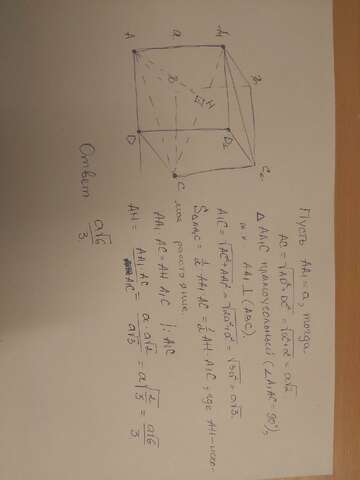 A a A₁
B B₁
H
D D₁
C C₁
Пусть AA₁ = a, тогда
AC = √AD² + DC² = √a² + a² = a√2
△ AA₁C прямоугольный (∠A₁AC = 90°),
т.к. AA₁ ⊥ (ABC).
A₁C = √AC² + AA₁² = √2a² + a² = √3a² = a√3.
S△AA₁C = ½ AA₁ · AC = ½ AH · A₁C, где AH - иско-
мое расстояние.
AA₁ · AC = AH · A₁C |: A₁C
AH = AA₁ · AC / A₁C = a · a√2 / a√3 = a√2/3 = a√6/3.
Ответ a√6/3.